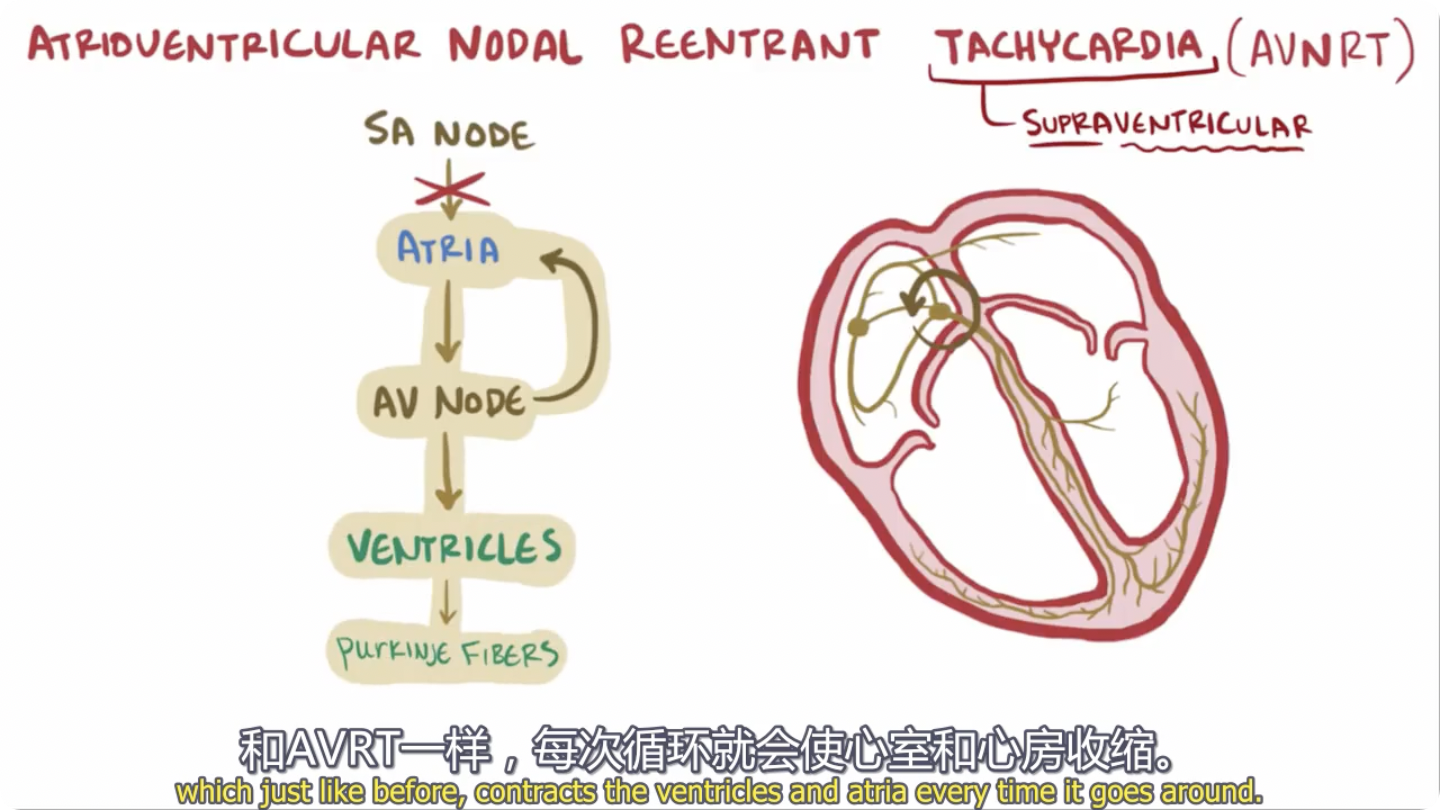 ATRIOVENTRICULAR NODAL REENTRANT TACHYCARDIA (AVNRT)
SUPRAVENTRICULAR
SA NODE
ATRIA
AV NODE
VENTRICLES
PURKINJE FIBERS
和AVRT一样，每次循环就会使心室和心房收缩。
which just like before, contracts the ventricles and atria every time it goes around.